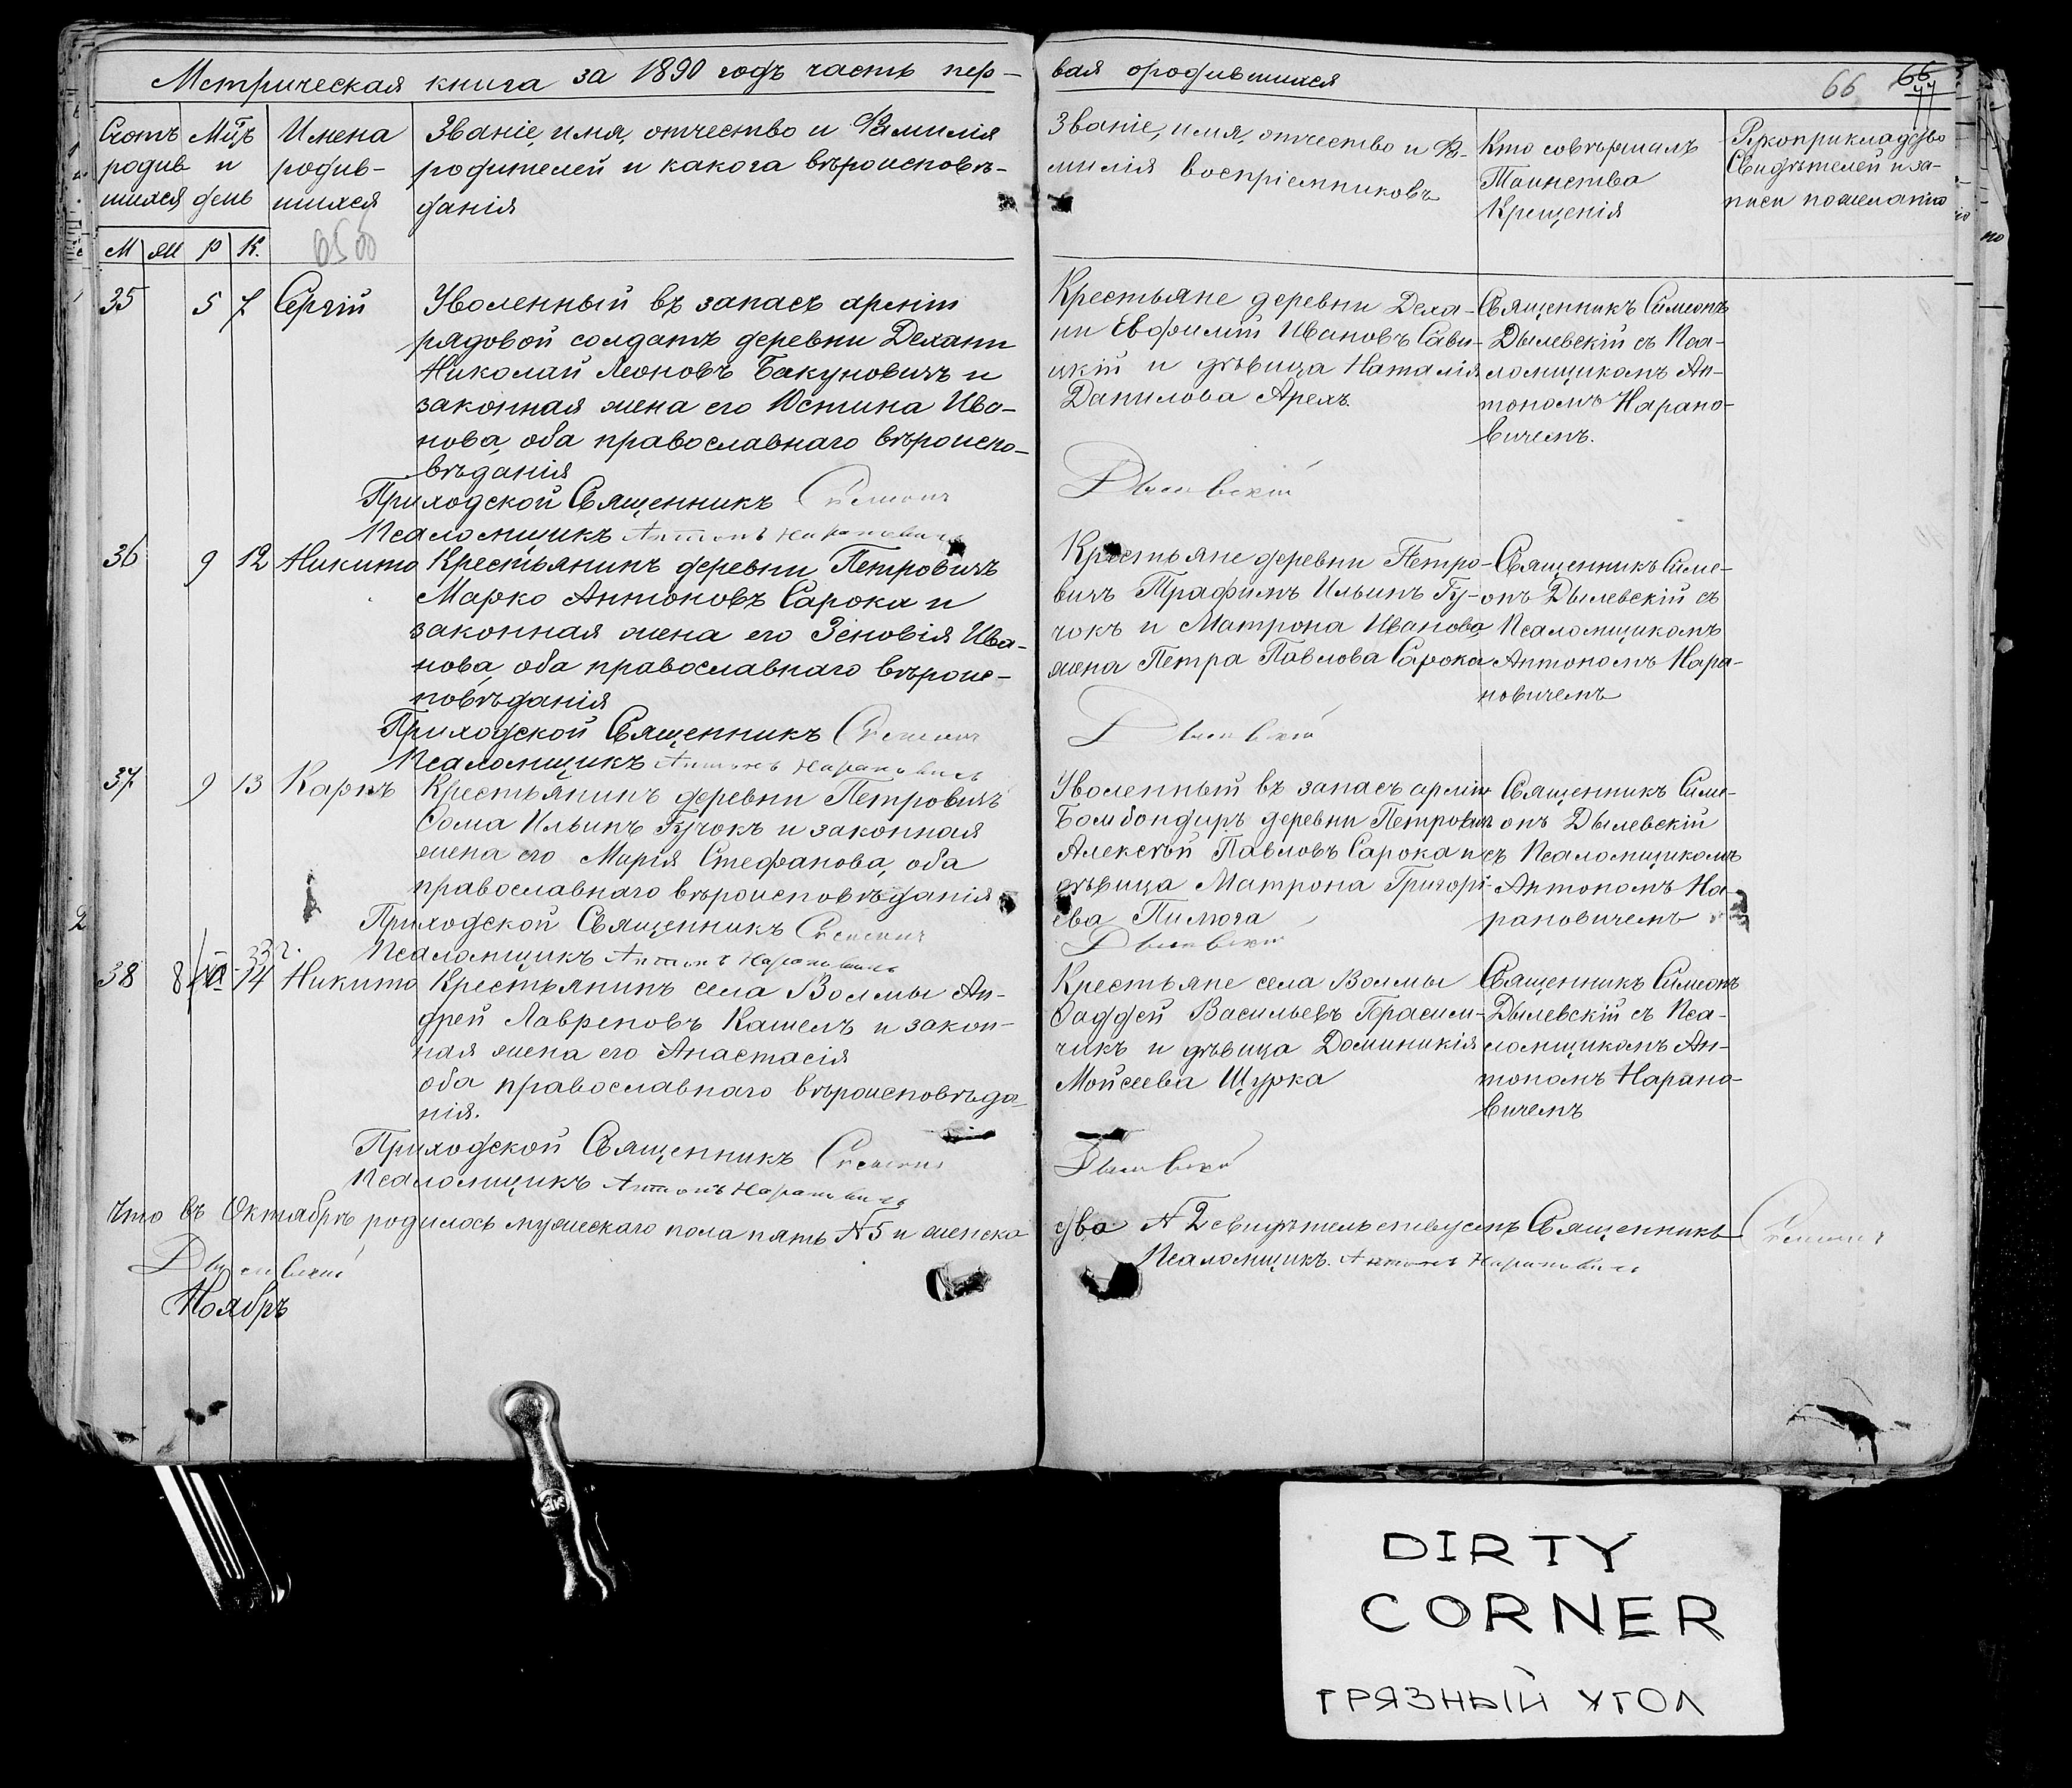 Метрическая книга за 1890 годъ часть пер-
вая ородившихся
66
Счотъ родив шихся
Мцъ и день
Имена родив- шихся
Званіе, имя, отчество и Фамилія
родителей и какога вѣроисповѣ-
данія
Званіе, имя, отчество и Фа-
милія воспріемниковъ
Кто совершалъ
Таинства
Крещенія
Рукоприкладство
Свидѣтелей и за-
писи пожеланію
М Ж Р К.
35 5 7 Сергій
Уволенный въ запасъ арміи
рядовой солдатъ деревни Дехани
Николай Леоновъ Бакуновичъ и
законная жена его Юстина Ива-
нова, оба православнаго вѣроиспо-
вѣданія
Приходской Священникъ Симеонъ
Псаломщикъ Антонъ Нарановичъ
Крестьяне деревни Деха-
ни Евфимій Ивановъ Сави-
цкій и дѣвица Наталія
Данилова Арехъ.
Дылевскій
Священникъ Симеонъ
Дылевскій съ Пса-
ломщикомъ Ан-
тономъ Нарано-
вичемъ.
36 9 12 Никита
Крестьянинъ деревни Петровичъ
Марко Антоновъ Сарока и
законная жена его Зеновія Ива-
нова, оба православнаго вѣроис-
повѣданія
Приходской Священникъ Симеонъ
Псаломщикъ Антонъ Нарановичъ
Крестьяне деревни Петро-
вичъ Трафимъ Ильинъ Гу-
чокъ и Матрона Иванова,
жена Петра Павлова Сарока
Дылевскій
Священникъ Симе-
онъ Дылевскій съ
Псаломщикомъ
Антономъ Нара-
новичемъ
37 9 13 Карпъ
Крестьянинъ деревни Петровичъ
Фома Ильинъ Гучокъ и законная
жена его Марія Стефанова, оба
православнаго вѣроисповѣданія
Приходской Священникъ Симеонъ
Псаломщикъ Антонъ Нарановичъ
Уволенный въ запасъ арміи
Бомбондиръ деревни Петровичъ
Алексѣй Павловъ Сарока и
дѣвица Матрона Григорі-
ева Пилюга
Дылевскій
Священникъ Симе-
онъ Дылевскій
съ Псаломщикомъ
Антономъ На-
рановичемъ
38 8 14 Никита
Крестьянинъ села Волмы Ан-
дрей Лавреновъ Кашелъ и закон-
ная жена его Анастасія
оба православнаго вѣроисповѣда-
нія.
Приходской Священникъ Симеонъ
Псаломщикъ Антонъ Нарановичъ
Крестьяне села Волмы
Фаддей Васильевъ Герасим-
чикъ и дѣвица Доминикія
Мойсеева Щурка
Дылевскій
Священникъ Симеонъ
Дылевскій съ Пса-
ломщикомъ Ан-
тономъ Нарано-
вичемъ
Что въ Октябрѣ родилось мужескаго пола пять № 5 и женска
два № 2 свидѣтельствуемъ Священникъ Симеонъ
Дылевскій
Псаломщикъ. Антонъ Нарановичъ
Ноябрь
DIRTY
CORNER
ГРЯЗНЫЙ УГОЛ